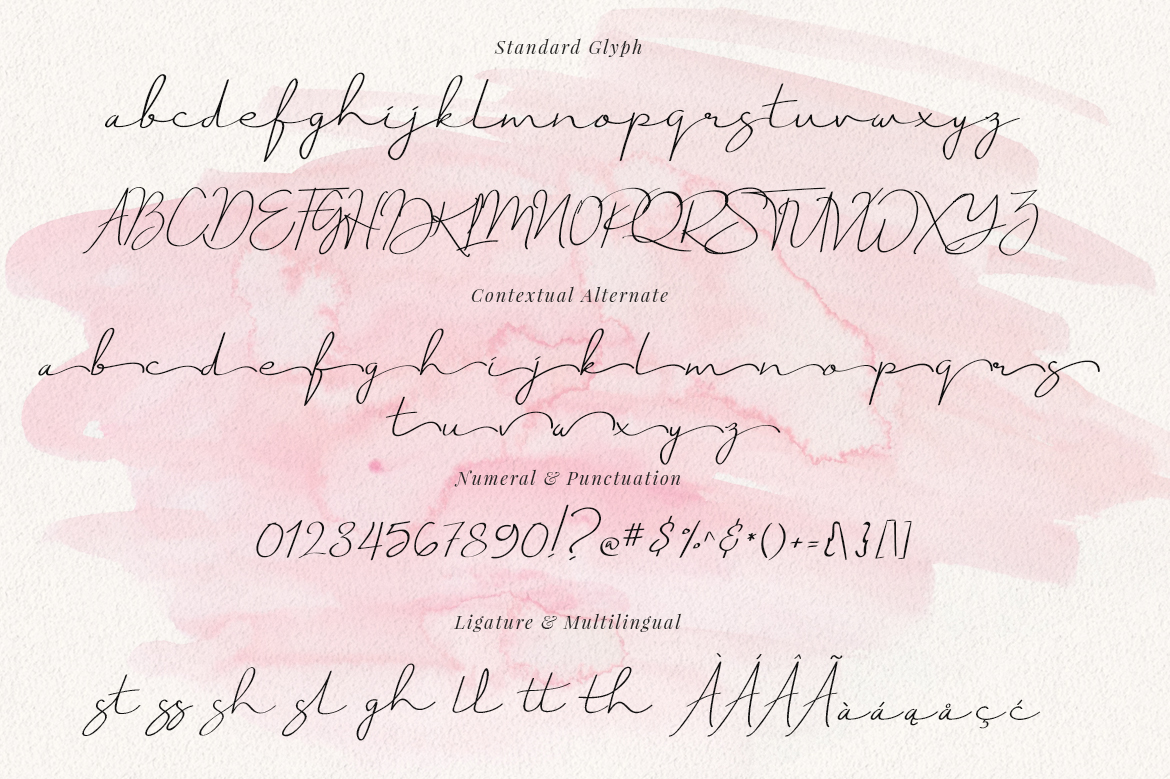 Standard Glyph
abcdefghijklmnopqrstuvwxyz
ABCDEFGHIJKLMNOPQRSTUVWXYZ
Contextual Alternate
abcdefghijklmnopqrs
tuvwxyz
Numeral & Punctuation
01234567890!?@#$%^&*()+={\}[\]
Ligature & Multilingual
st ss sh sl gh ll tt th ÀÁÂÃàáąåçć